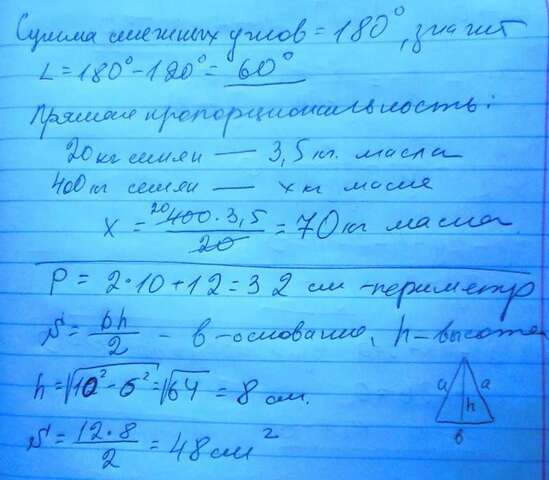 Сумма смежных углов = 180°, значит
L = 180° - 120° = 60°
Прямая пропорциональность:
20 кг семян — 3,5 кг. масла
400 кг семян — x кг масла
x = 20 400 · 3,5 / 20 = 70 кг масла.
P = 2·10+12 = 32 см - периметр
S = bh/2 - b - основание, h - высота
h = √10² - 6² = √64 = 8 см.
a a h b
S = 12·8/2 = 48 см²